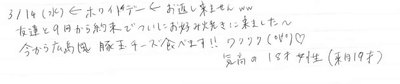 3/14(水) ← ホワイトデー ← お返し来ませんww
友達と9日から約束でついにお好み焼きに来ました〜
今から広島風 豚玉チーズ食べます!! ワクワク(o^^o)♡
気高の18才女性(来月19才)